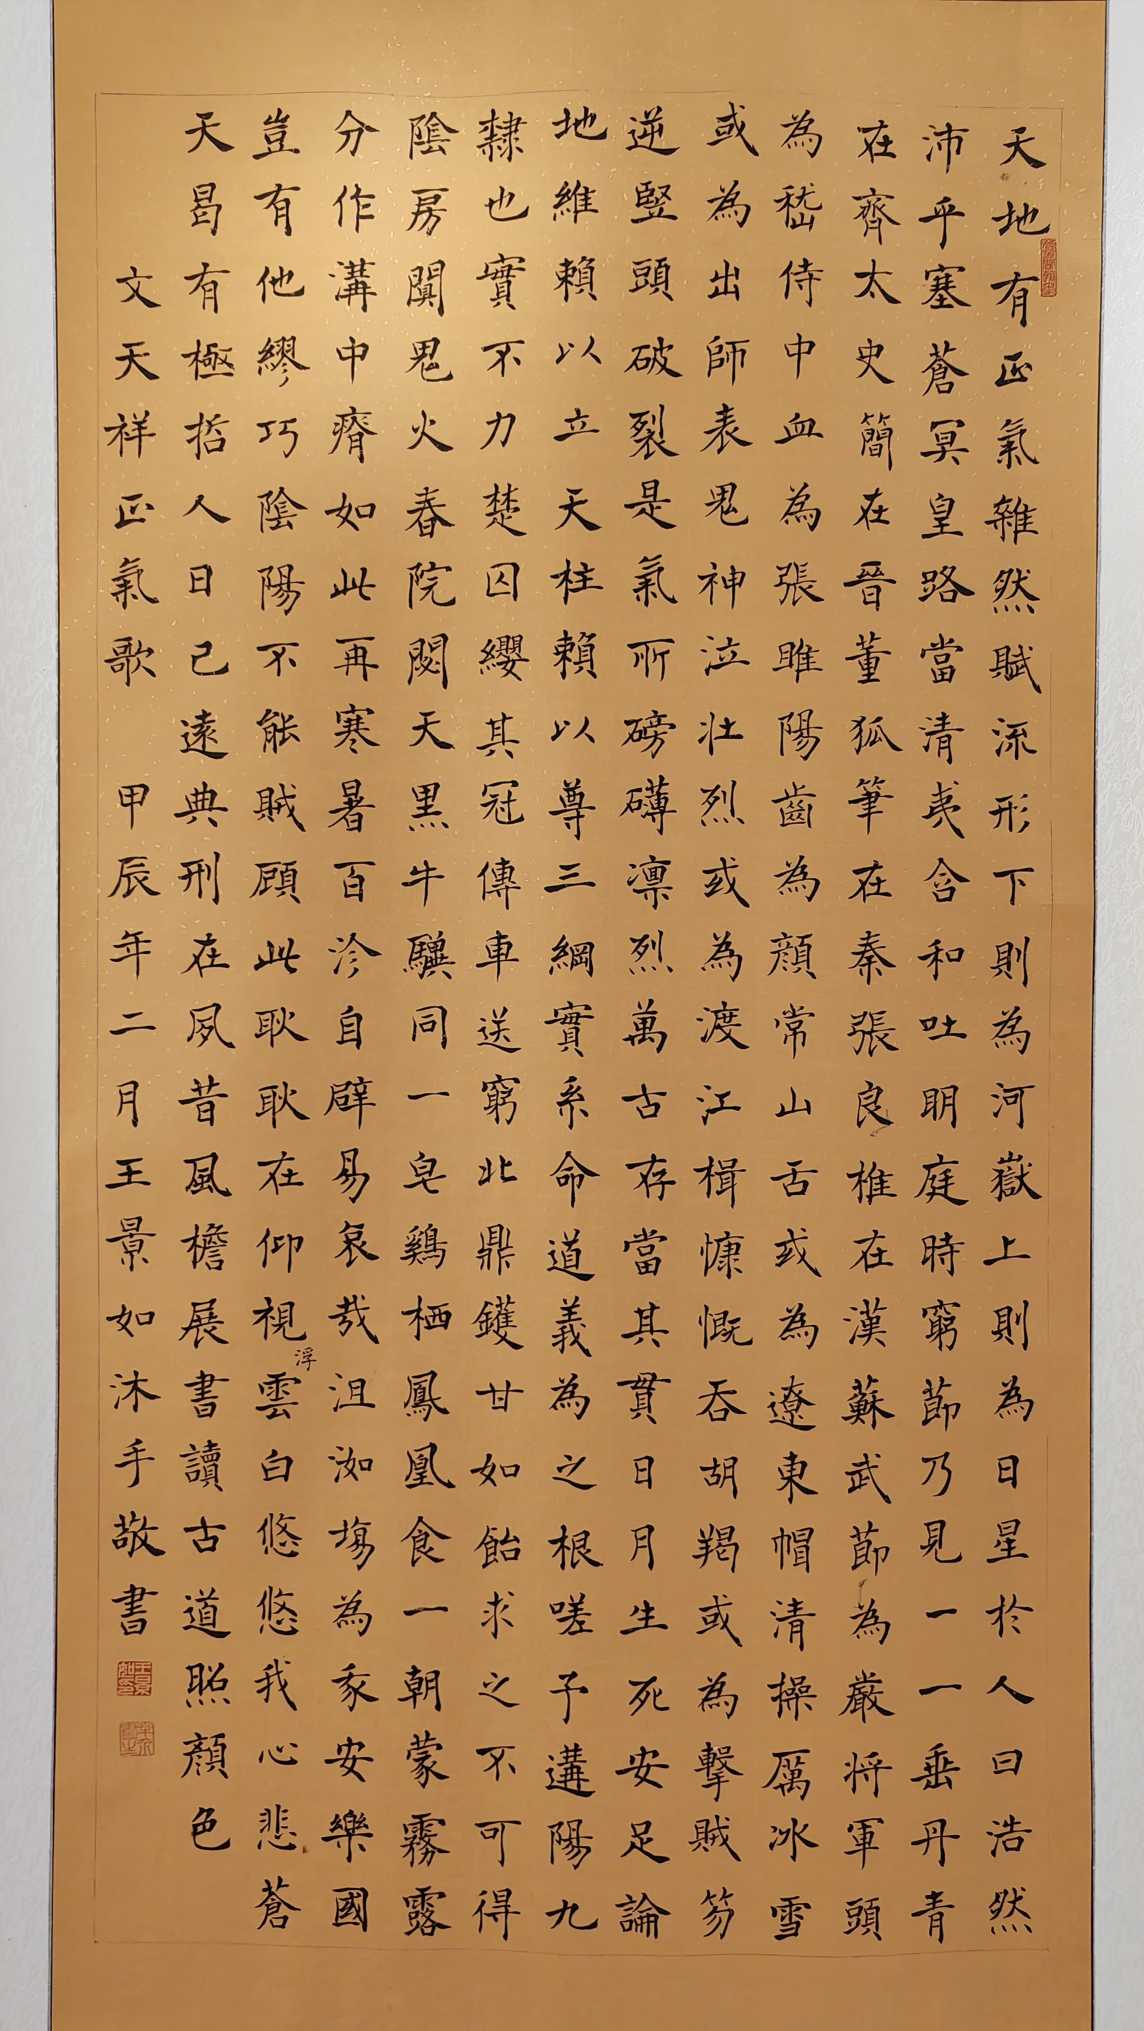 天地有正氣雜然賦流形下則為河嶽上則為日星於人曰浩然
沛乎塞蒼冥皇路當清夷含和吐明庭時窮節乃見一一垂丹青
在齊太史簡在晉董狐筆在秦張良椎在漢蘇武節為嚴將軍頭
為嵇侍中血為張睢陽齒為顏常山舌或為遼東帽清操厲冰雪
或為出師表鬼神泣壯烈或為渡江楫慷慨吞胡羯或為擊賊笏
逆豎頭破裂是氣所磅礴凛烈萬古存當其貫日月生死安足論
地維賴以立天柱賴以尊三綱實系命道義為之根嗟予遘陽九
隸也實不力楚囚纓其冠傳車送窮北鼎鑊甘如飴求之不可得
陰房闃鬼火春院閟天黑牛驥同一皂鷄栖鳳凰食一朝蒙霧露
分作溝中瘠如此再寒暑百沴自辟易哀哉沮洳場為我安樂國
豈有他繆巧陰陽不能賊顧此耿耿在仰視浮雲白悠悠我心悲蒼
天曷有極哲人日已遠典刑在夙昔風檐展書讀古道照顏色
文天祥正氣歌 甲辰年二月王景如沐手敬書